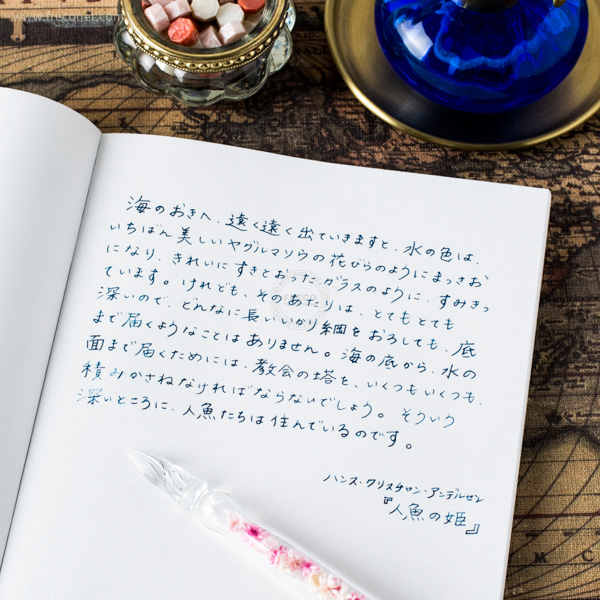 www.frecquet.com
海のおきへ、遠く遠く出ていきますと、水の色は、
いちばん美しいヤグルマソウの花びらのようにまっさお
になり、きれいにすきとおったガラスのように、すみきっ
ています。けれども、そのあたりは、とてもとても
深いので、どんなに長いいかり綱をおろしても、底
まで届くようなことはありません。海の底から、水の
面まで届くためには、教会の塔を、いくつもいくつも、
積みかさねなければならないでしょう。そういう
深いところに、人魚たちは住んでいるのです。
ハンス・クリスチャン・アンデルセン
『人魚の姫』